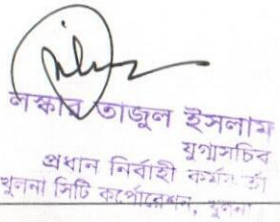 লস্কার তাজুল ইসলাম
যুগ্মসচিব
প্রধান নির্বাহী কর্মকর্তা
খুলনা সিটি কর্পোরেশন, খুলনা